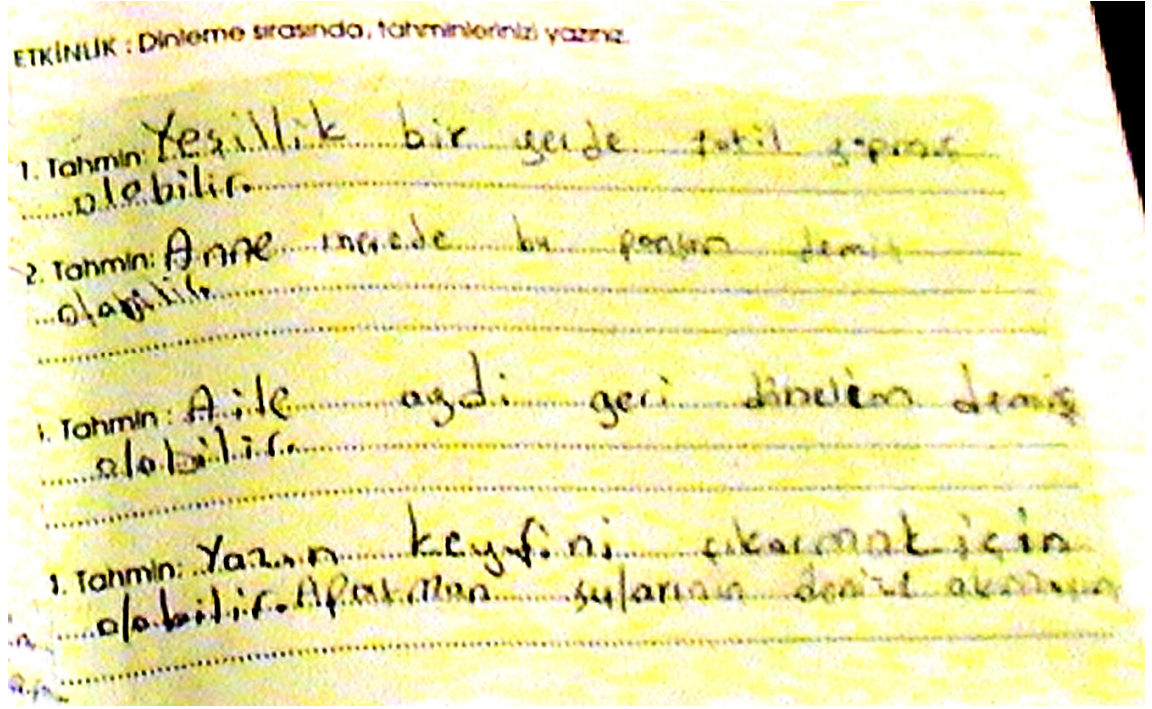 ETKİNLİK : Dinleme sırasında, tahminlerinizi yazınız.
1. Tahmin: Yeşillik bir yerde tatil yapmış
olabilir.
2. Tahmin: Anne nerede bu demiş
olabilir.
. Tahmin : Aile aydi geri dinelem demiş
olabilir.
. Tahmin: Yazın keyfini çıkarmak için
olabilir. Apartman sularının denize